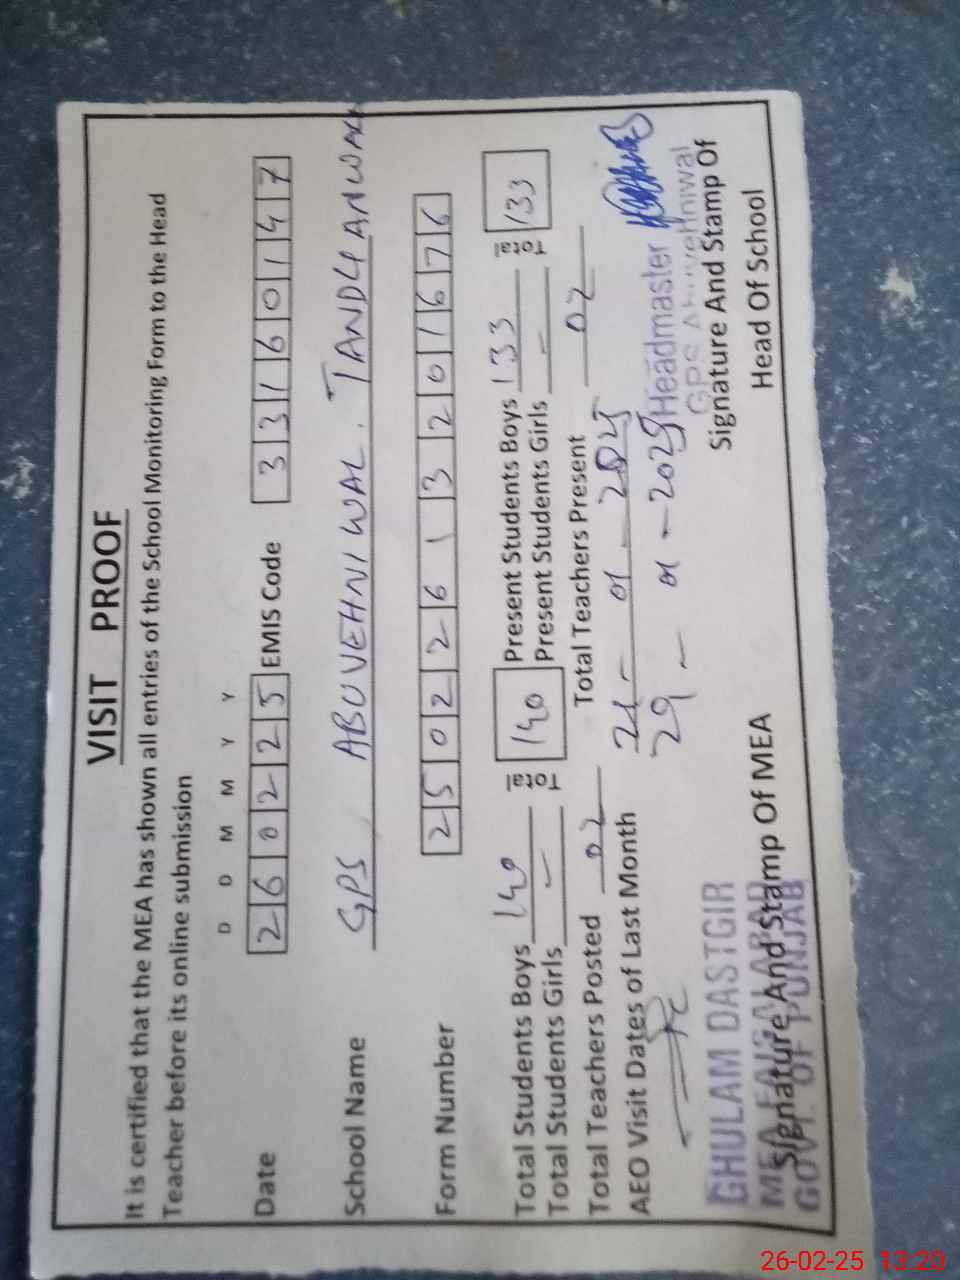 VISIT PROOF
It is certified that the MEA has shown all entries of the School Monitoring Form to the Head
Teacher before its online submission
D D M M Y Y
Date 260225 EMIS Code 33160147
School Name GPS ABUVEHNIWAL. TANDLIANWALA
Form Number 25022613201676
Total Students Boys 140 Total 140 Present Students Boys 133 Total 133
Total Students Girls – Present Students Girls –
Total Teachers Posted 02 Total Teachers Present 02
AEO Visit Dates of Last Month 21 – 01 – 2025
29 – 01 – 2025
Headmaster
GPS
GHULAM DASTGIR
MEA FAISALABAD
GOVT. OF PUNJAB
Signature And Stamp Of MEA
Signature And Stamp Of
Head Of School
26-02-25 13:20